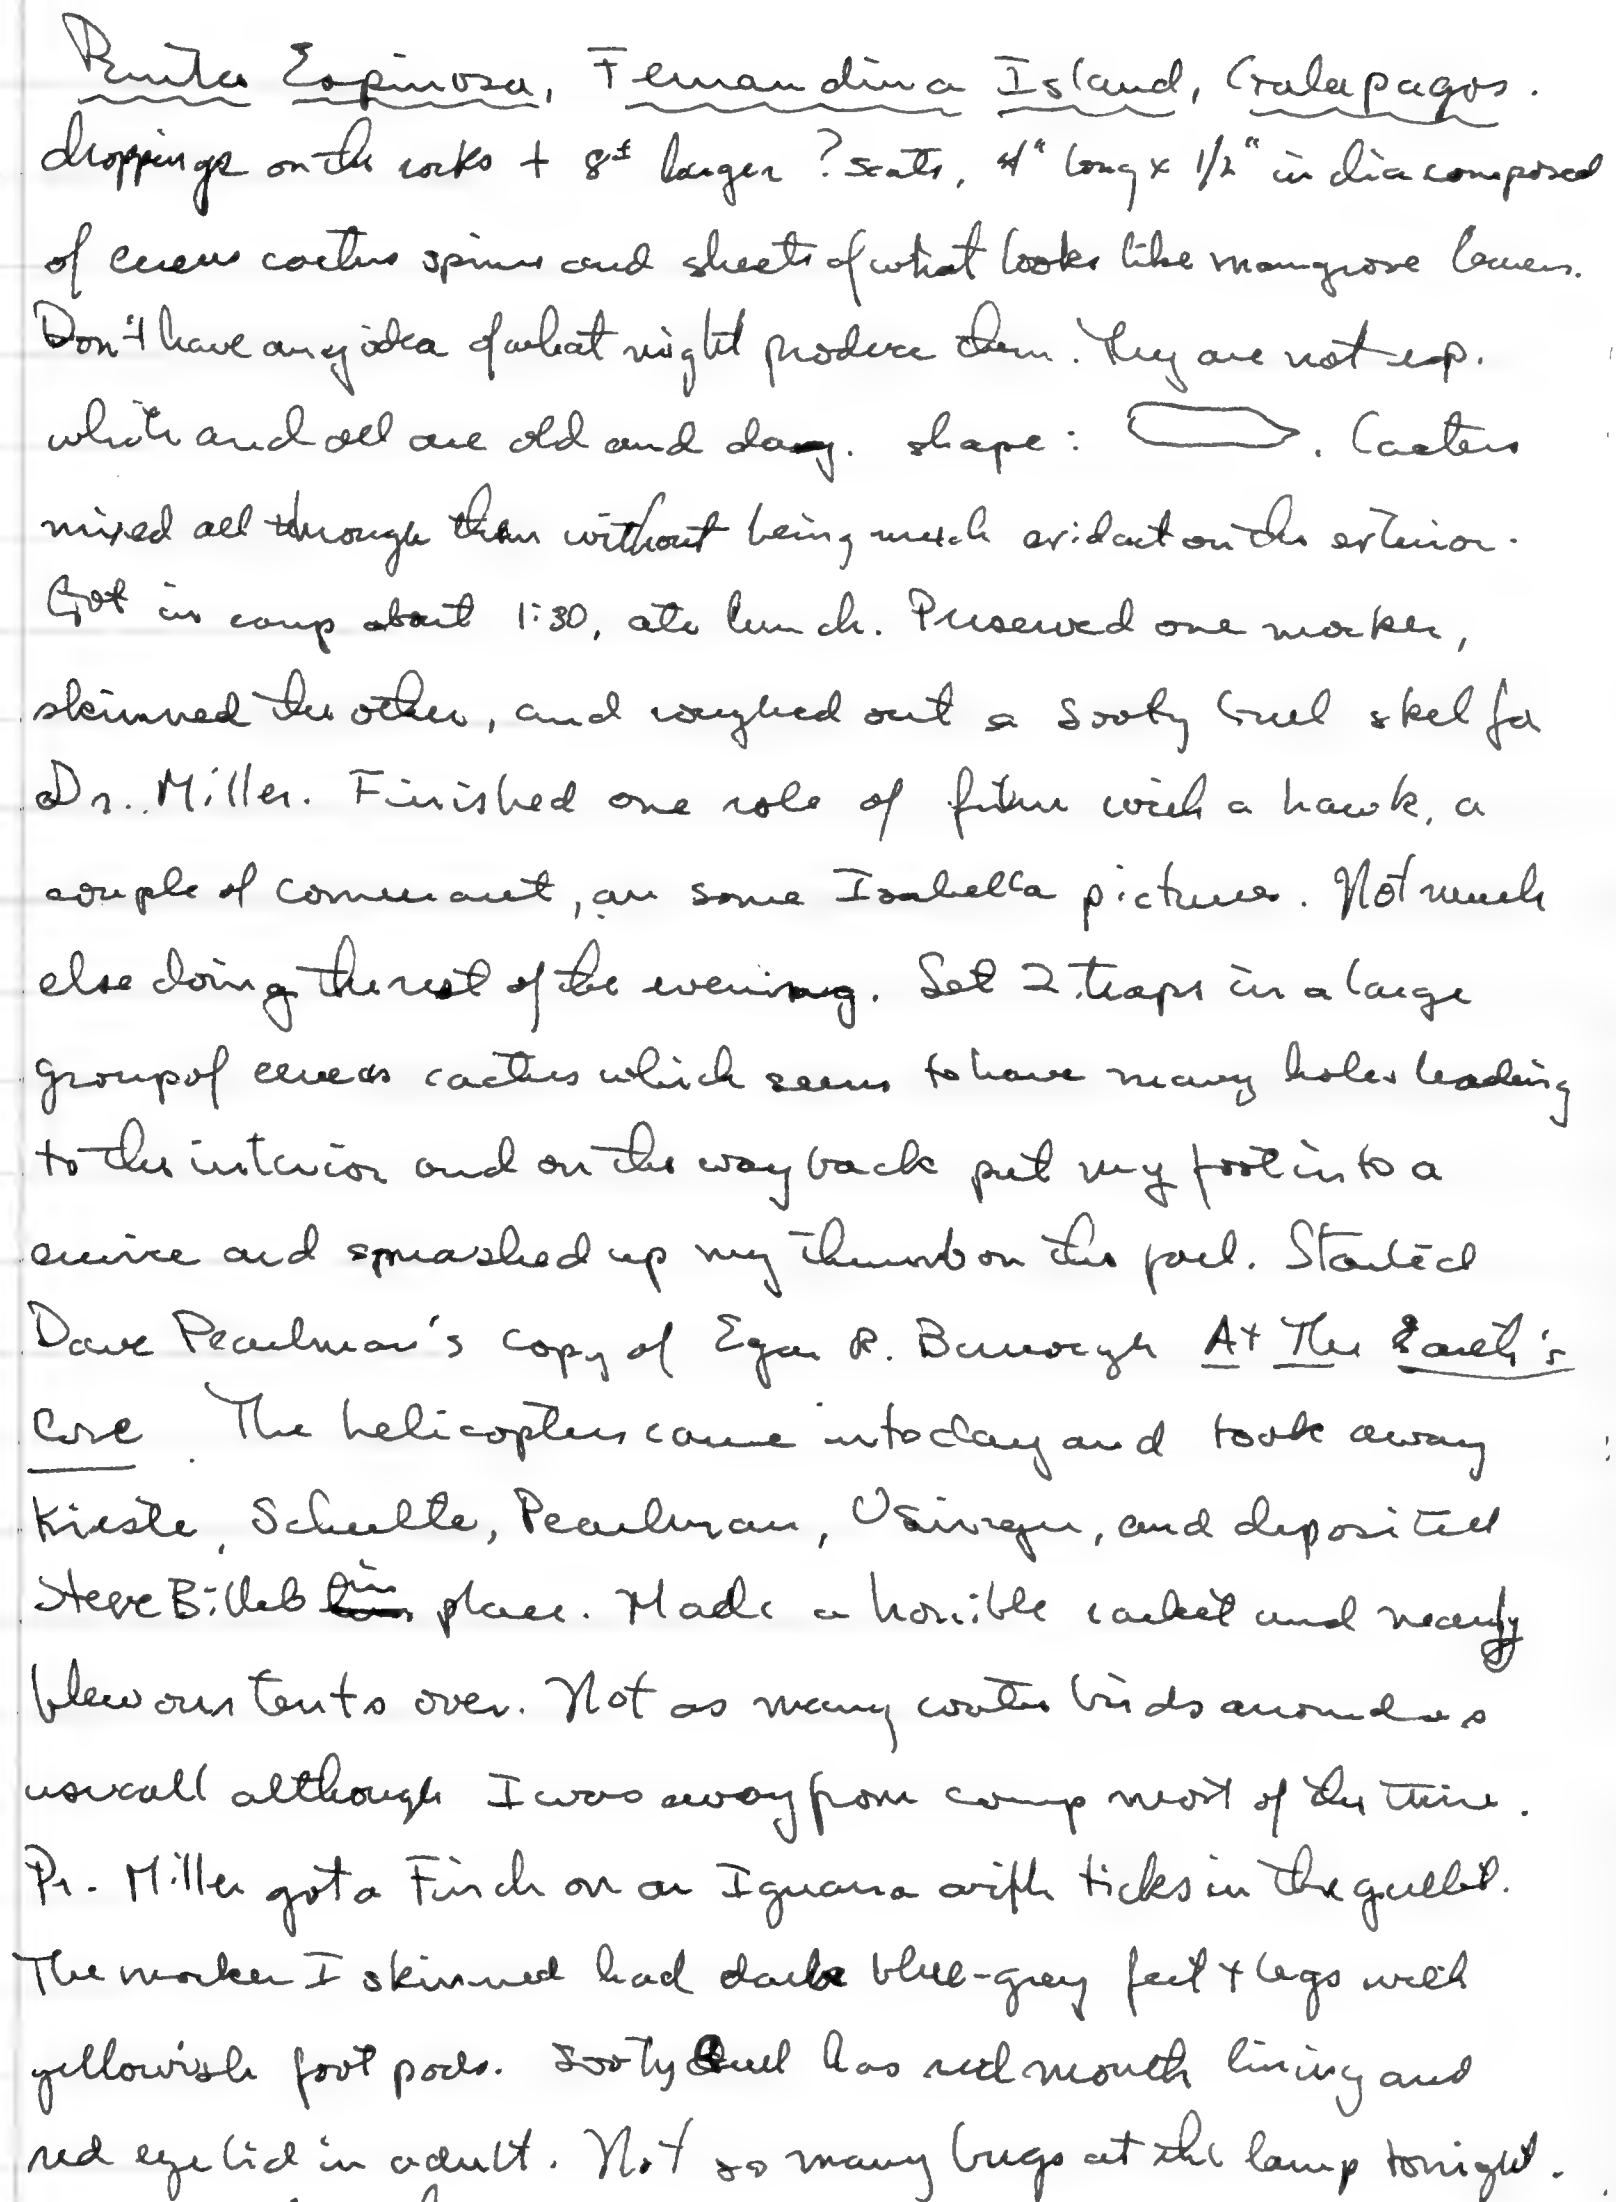 Punta Espinosa, Fernandina Island, Galapagos.
droppings on the rocks + 8± larger ? scats, 4" long x 1/2" in dia composed
of cereus cactus spines and sheets of what looks like mangrove leaves.
Don't have any idea of what might produce them. They are not esp.
white and all are old and dry. shape: . Cactus
mixed all through them without being much evident on the exterior.
Got in camp about 1:30, ate lunch. Preserved one mocker,
skinned the other, and roughed out a Sooty Gull skel for
Dr. Miller. Finished one role of film with a hawk, a
couple of cormorant, an some Isabella pictures. Not much
else doing the rest of the evening. Set 2 traps in a large
group of cereus cactus which seems to have many holes leading
to the interior and on the way back put my foot into a
crevice and smashed up my thumb on the fall. Started
Dave Pearlman's copy of Egar R. Burrough At The Earth's
Core. The helicopters came in today and took away
Kieste, Schulte, Pearlman, Usinger, and deposited
Steve Billeb in place. Made a horrible racket and nearly
blew our tents over. Not as many water birds around as
usuall although I was away from camp most of the time.
Dr. Miller got a Finch on an Iguana with ticks in the gullet.
The mocker I skinned had dark blue-grey feet + legs with
yellowish foot pads. Sooty Gull has red mouth lining and
red eye lid in adult. Not so many bugs at the lamp tonight.